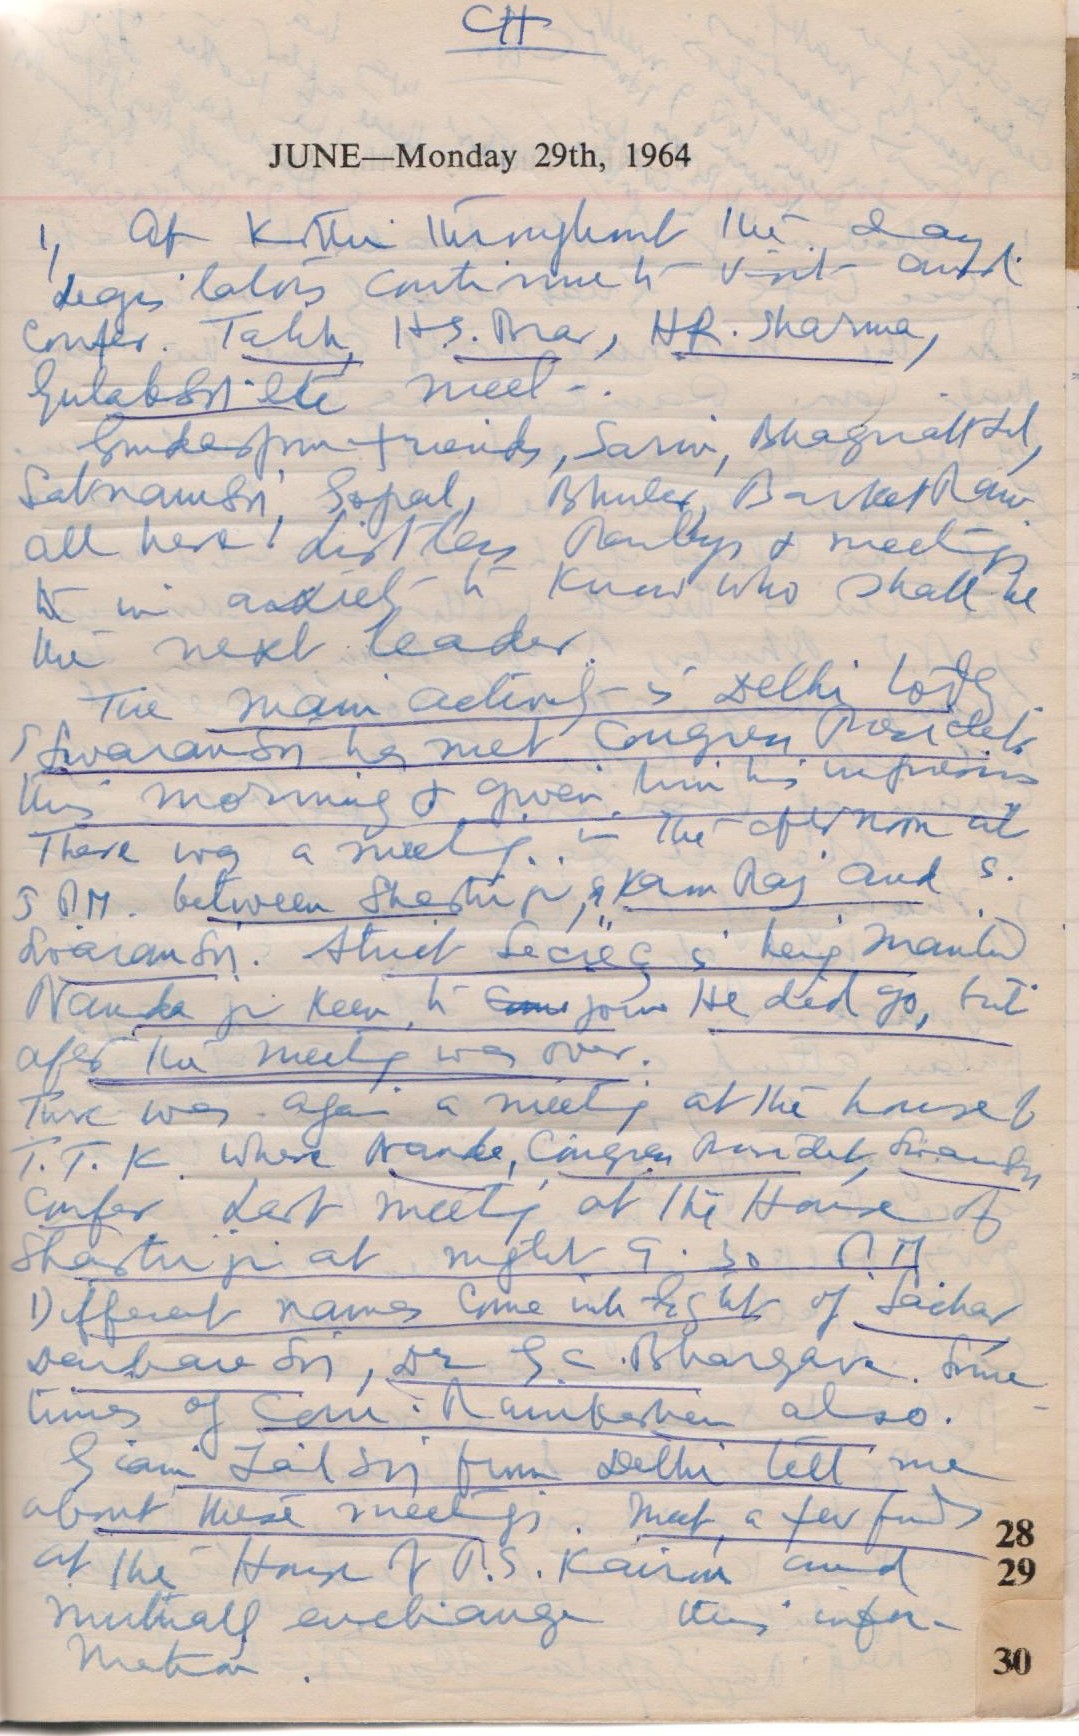 CH
JUNE—Monday 29th, 1964
1, At Kothi throughout the day
legislators continue to visit and
confer. Talib, H.S. Brar, H.R. Sharma,
Gulab Sn etc meet -.
friends, Sarin, Bhagirath Lal,
Satnam Sn, Gopal, Bhuler, Barket Ram
all here! Listless & meetings
in anxiety to know who shall be
the next leader.
The main activity is Delhi today
S Swaran Sn has met Congress President
this morning & given him his impressions
There was a meeting.. in the afternoon at
5 P.M. between Shastri ji, & Kam Raj and S.
Swaran Sn. Strict secrecy is being maintd
Nanda ji keen to join He did go, but
after the meeting was over.
There was again a meeting at the house of
T.T.K. where Nanda, Congress President, Swaran Sn
confer Last meeting at the House of
Shastri ji at night 9.30 P.M
Different names come into light of Sachar
Darbara Sn, Dr G.C. Bhargava. Some
times of Com. Ramkishen also.
Giani Zail Sn from Delhi tell me
about these meetings. Meet a few friends
at the House of P.S. Kairon and
mutually exchange this infor-
mation.
28
29
30